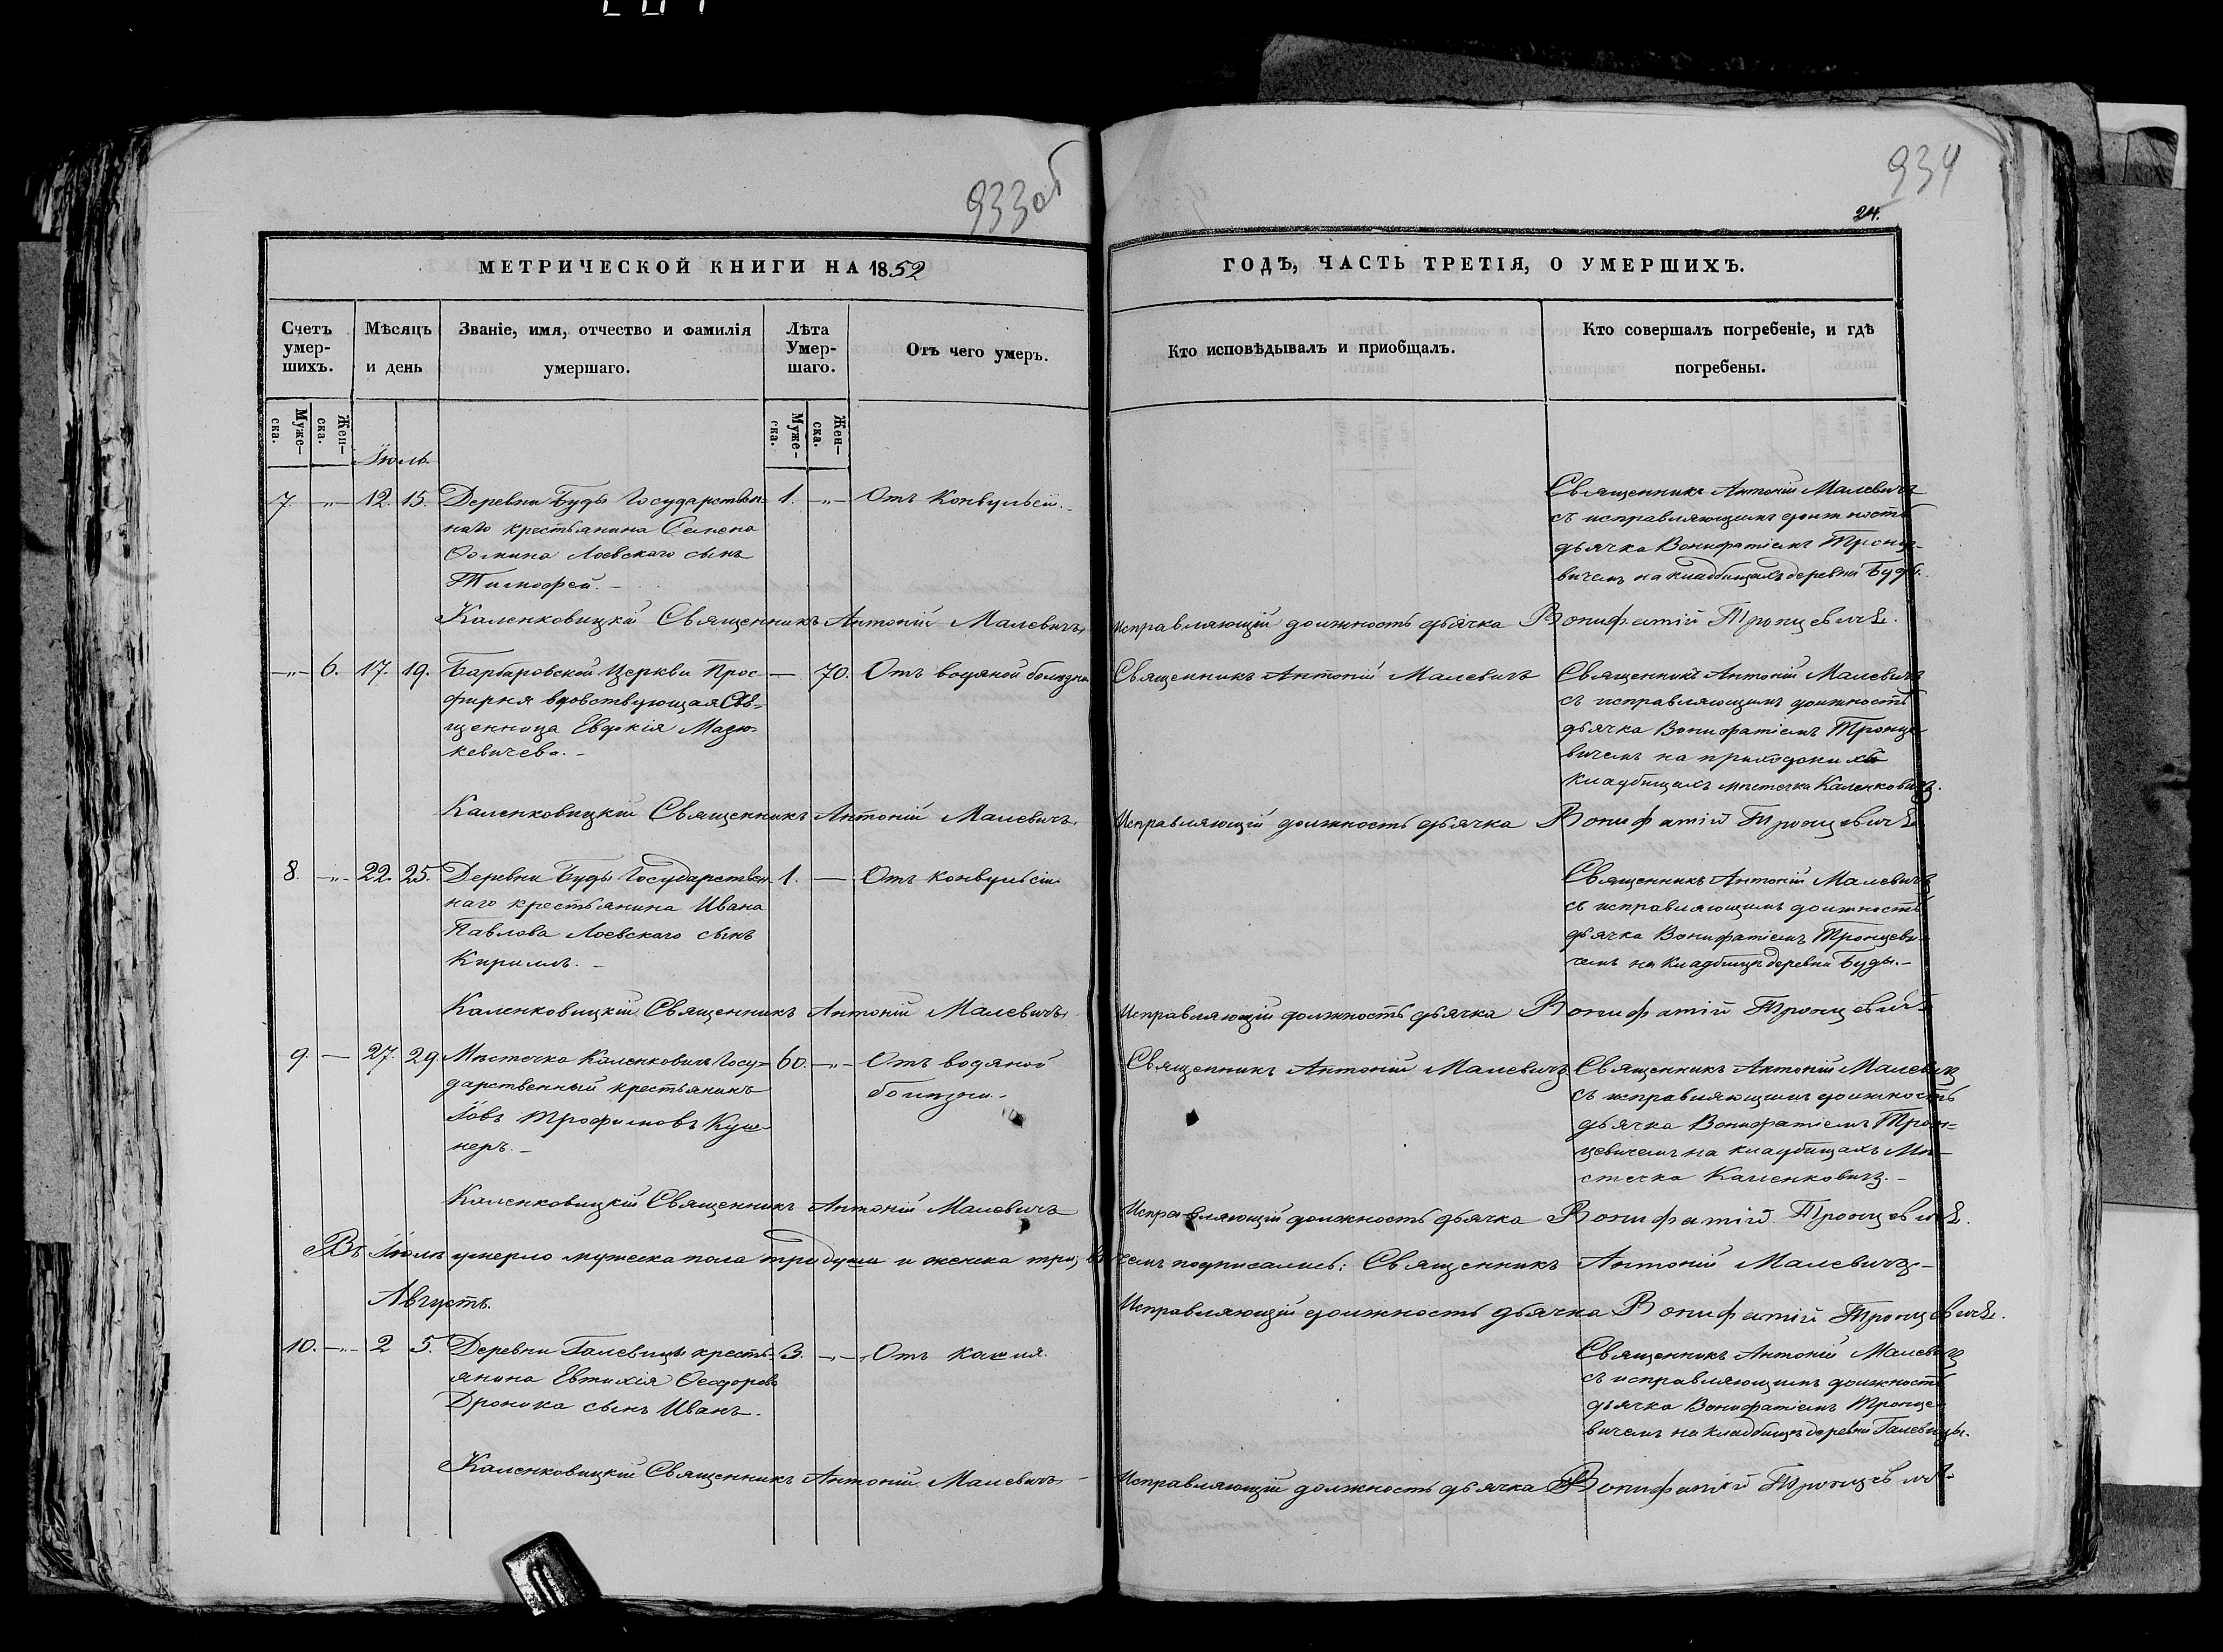 933об
934
24.
МЕТРИЧЕСКОЙ КНИГИ НА 1852
ГОДЪ, ЧАСТЬ ТРЕТІЯ, О УМЕРШИХЪ.
Счетъ умер-шихъ.
Мѣсяцъ и день
Званіе, имя, отчество и фамилія умершаго.
Лѣта Умер-шаго.
Отъ чего умеръ.
Кто исповѣдывалъ и приобщалъ.
Кто совершалъ погребеніе, и гдѣ погребены.
Муже-ска.
Жен-ска.
Муже-ска.
Жен-ска.
Іюль
7. -"- 12. 15. Деревни Буды Государствен- 1. -"- Отъ Конвульсій.
наго крестьянина Семена
Фомина Лоевскаго сынъ
Тимофей. -
Священникъ Антоній Малевичъ
съ исправляющимъ должность
дьячка Вонифатіемъ Тронце-
вичемъ на кладбищахъ деревни Буды.
Каленковицкій Священникъ Антоній Малевичъ
Исправляющій должность дьячка Вонифатій Тронцевичъ.
-"- 6. 17. 19. Барбаровской Церкви Прос- — 70. Отъ водяной болѣзни
фирня вдовствующая Свя-
щенница Евдокія Мазю-
кевичева. -
Священникъ Антоній Малевичъ
Священникъ Антоній Малевичъ
съ исправляющимъ должность
дьячка Вонифатіемъ Тронце-
вичемъ на приходскихъ
кладбищахъ мѣстечка Каленковичъ.
Каленковицкій Священникъ Антоній Малевичъ
Исправляющій должность дьячка Вонифатій Тронцевичъ
8. -"- 22. 25. Деревни Буды Государствен- 1. — Отъ конвульсіи
наго крестьянина Ивана
Павлова Лоевскаго сынъ
Кириллъ. -
Священникъ Антоній Малевичъ
съ исправляющимъ должность
дьячка Вонифатіемъ Тронцеви-
чемъ на кладбищѣ деревни Буды. -
Каленковицкій Священникъ Антоній Малевичъ
Исправляющій должность дьячка Вонифатій Тронцевичъ
9. — 27. 29. Мѣстечка Каленковичъ Госу- 60. -"- Отъ водяной
дарственный крестьянинъ
болѣзни. -
Іовъ Трофимовъ Куш-
неръ. -
Священникъ Антоній Малевичъ
Священникъ Антоній Малевичъ
съ исправляющимъ должность
дьячка Вонифатіемъ Трон-
цевичемъ на кладбищахъ Мѣ-
стечка Каленковичъ. -
Каленковицкій Священникъ Антоній Малевичъ
Исправляющій должность дьячка Вонифатій Тронцевичъ.
Въ Іюлѣ умерло мужеска пола три души и женска три, въ чемъ подписались: Священникъ Антоній Малевичъ -
Исправляющій должность дьячка Вонифатій Тронцевичъ.
Августъ.
10. -"- 2 5. Деревни Галевицъ кресть- 3. -"- Отъ кашля.
янина Евтихія Феодорова
Дронока сынъ Иванъ.
Священникъ Антоній Малевичъ
съ исправляющимъ должность
дьячка Вонифатіемъ Тронце-
вичемъ на кладбищѣ деревни Галевицы.
Каленковицкій Священникъ Антоній Малевичъ -
Исправляющій должность дьячка Вонифатій Тронцевичъ